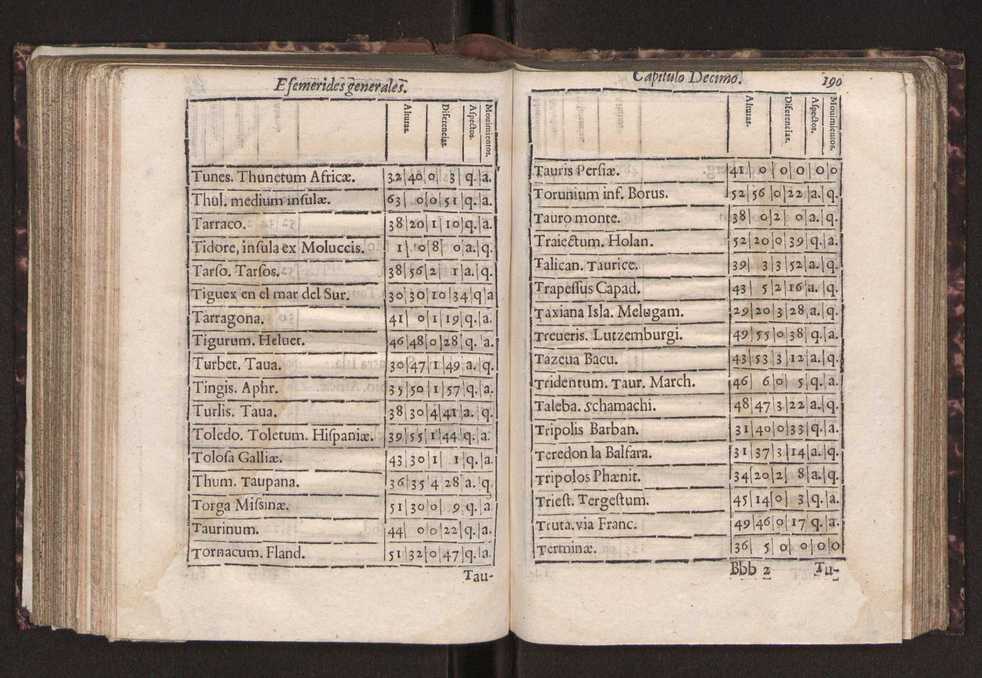 Eſemerides generales.
Alturas. Diferencias. Aſpectos. Mouimientos.
Tunes. Thunetum Africæ. 32 40 0 3 q. a.
Thul. medium inſulæ. 63 0 0 51 q. a.
Tarraco. 38 20 1 10 q. a.
Tidore, inſula ex Moluccis. 1 0 8 0 a. q.
Tarſo. Tarſos. 38 56 2 1 a. q.
Tiguex en el mar del Sur. 30 30 10 34 q a
Tarragona. 41 0 1 19 q. a.
Tigurum. Heluet. 46 48 0 28 q. a.
Turbet. Taua. 30 47 1 49 a. q.
Tingis. Aphr. 35 50 1 57 q. a.
Turlis. Taua. 38 30 4 41 a. q.
Toledo. Toletum. Hiſpaniæ. 39 55 1 44 q. a.
Toloſa Galliæ. 43 30 1 1 q. a.
Thum. Taupana. 36 35 4 28 a. q.
Torga Miſsinæ. 51 30 0 9 q. a.
Taurinum. 44 0 0 22 q. a.
Tornacum. Fland. 51 32 0 47 q. a.
Tau-
Capitulo Decimo. 190
Alturas. Diferencias. Aſpectos. Mouimientos.
Tauris Perſiæ. 41 0 0 0 0 0
Torunium inf. Borus. 52 56 0 22 a. q.
Tauro monte. 38 0 2 0 a. q.
Traiectum. Holan. 52 20 0 39 q. a.
Talican. Taurice. 39 3 3 52 a. q.
Trapeſſus Capad. 43 5 2 16 a. q.
Taxiana Isla. Melugam. 29 20 3 28 a. q.
Treueris. Lutzemburgi. 49 55 0 38 q. a.
Tazeua Bacu. 43 53 3 12 a. q.
Tridentum. Taur. March. 46 6 0 5 q. a.
Taleba. Schamachi. 48 47 3 22 a. q.
Tripolis Barban. 31 40 0 33 q. a.
Teredon la Balſara. 31 37 3 14 a. q.
Tripolos Phænit. 34 20 2 8 a. q.
Trieſt. Tergeſtum. 45 14 0 3 q. a.
Truta. via Franc. 49 46 0 17 q. a.
Terminæ. 36 5 0 0 0 0
Bbb 2 Tu-